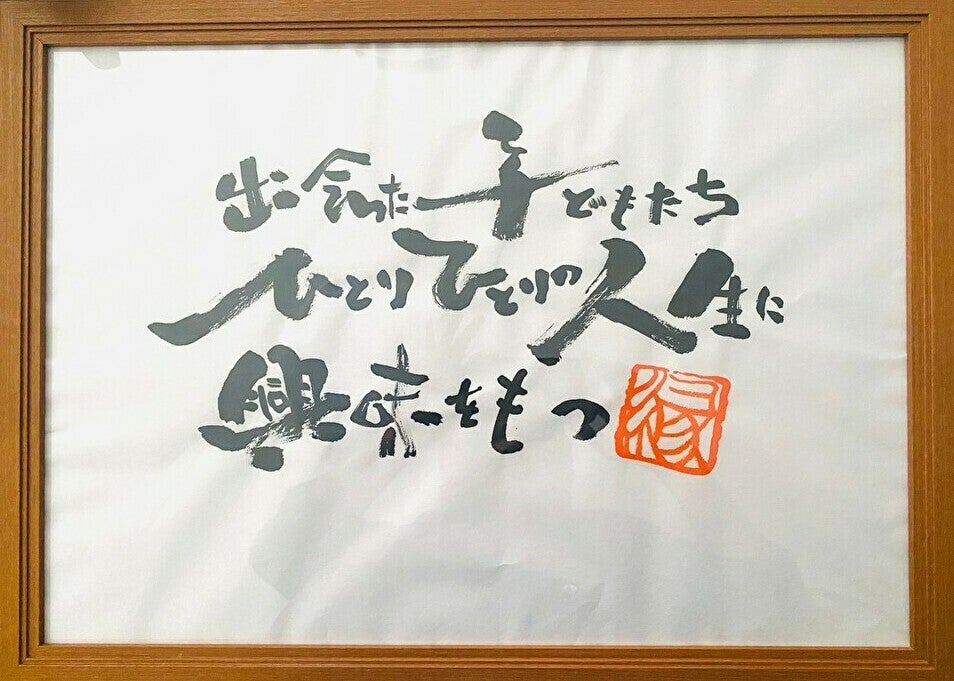 出会った子どもたち
ひとりひとりの人生に
興味をもつ
縁